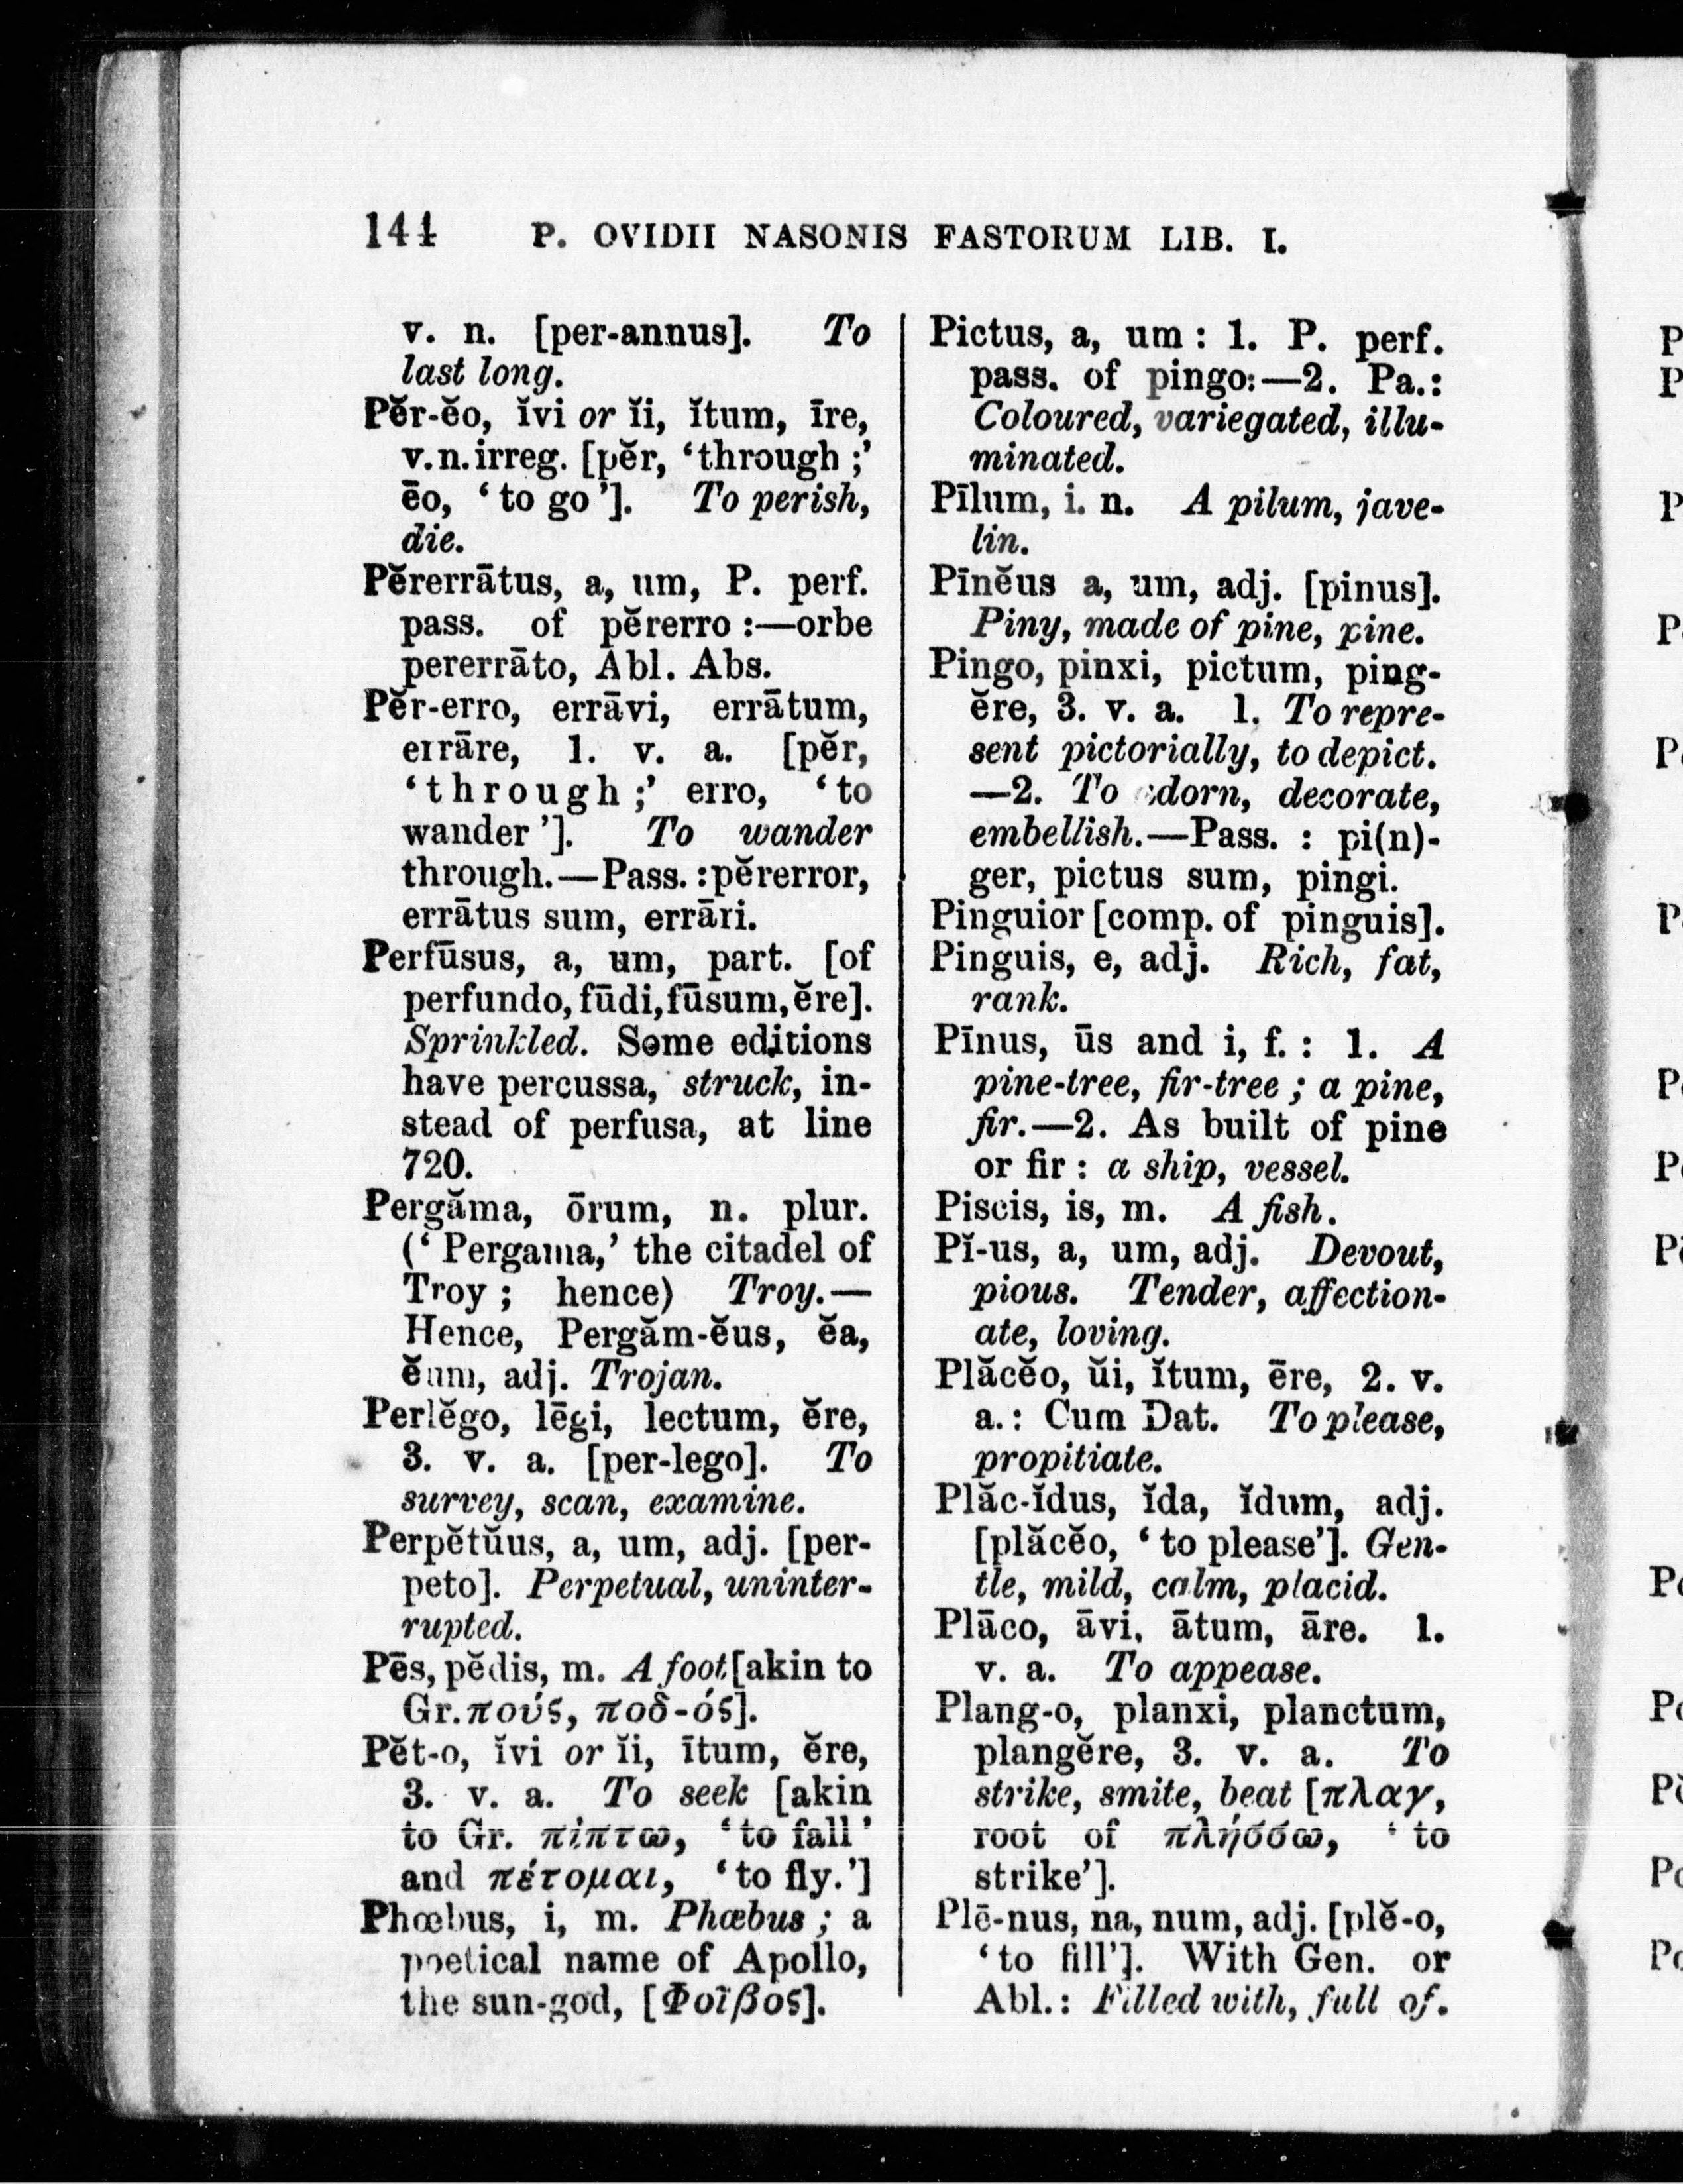 144 P. OVIDII NASONIS FASTORUM LIB. I.
v. n. [per-annus]. To
last long.
Pĕr-ĕo, ĭvi or ĭi, ĭtum, īre,
v.n.irreg. [pĕr, ‘through ;’
ēo, ‘to go’]. To perish,
die.
Pĕrerrātus, a, um, P. perf.
pass. of pĕrerro :—orbe
pererrāto, Abl. Abs.
Pĕr-erro, errāvi, errātum,
errāre, 1. v. a. [pĕr,
‘through ;’ erro, ‘to
wander’]. To wander
through.—Pass. :pĕrerror,
errātus sum, errāri.
Perfūsus, a, um, part. [of
perfundo, fūdi, fūsum, ĕre].
Sprinkled. Some editions
have percussa, struck, in-
stead of perfusa, at line
720.
Pergăma, ōrum, n. plur.
(‘Pergama,’ the citadel of
Troy ; hence) Troy.—
Hence, Pergăm-ĕus, ĕa,
ĕum, adj. Trojan.
Perlĕgo, lēgi, lectum, ĕre,
3. v. a. [per-lego]. To
survey, scan, examine.
Perpĕtŭus, a, um, adj. [per-
peto]. Perpetual, uninter-
rupted.
Pēs, pĕdis, m. A foot [akin to
Gr. πούς, ποδ-ός].
Pĕt-o, ĭvi or ĭi, ītum, ĕre,
3. v. a. To seek [akin
to Gr. πίπτω, ‘to fall’
and πέτομαι, ‘to fly.’]
Phœbus, i, m. Phœbus ; a
poetical name of Apollo,
the sun-god, [Φοῖβος].
Pictus, a, um : 1. P. perf.
pass. of pingo:—2. Pa.:
Coloured, variegated, illu-
minated.
Pīlum, i. n. A pilum, jave-
lin.
Pīnĕus a, um, adj. [pinus].
Piny, made of pine, pine.
Pingo, pinxi, pictum, ping-
ĕre, 3. v. a. 1. To repre-
sent pictorially, to depict.
—2. To adorn, decorate,
embellish.—Pass. : pi(n)-
ger, pictus sum, pingi.
Pinguior [comp. of pinguis].
Pinguis, e, adj. Rich, fat,
rank.
Pīnus, ūs and i, f. : 1. A
pine-tree, fir-tree ; a pine,
fir.—2. As built of pine
or fir : a ship, vessel.
Piscis, is, m. A fish.
Pĭ-us, a, um, adj. Devout,
pious. Tender, affection-
ate, loving.
Plăcĕo, ŭi, ĭtum, ēre, 2. v.
a.: Cum Dat. To please,
propitiate.
Plăc-ĭdus, ĭda, ĭdum, adj.
[plăcĕo, ‘to please’]. Gen-
tle, mild, calm, placid.
Plāco, āvi, ātum, āre. 1.
v. a. To appease.
Plang-o, planxi, planctum,
plangĕre, 3. v. a. To
strike, smite, beat [πλαγ,
root of πλήσσω, ‘to
strike’].
Plē-nus, na, num, adj. [plĕ-o,
‘to fill’]. With Gen. or
Abl.: Filled with, full of.